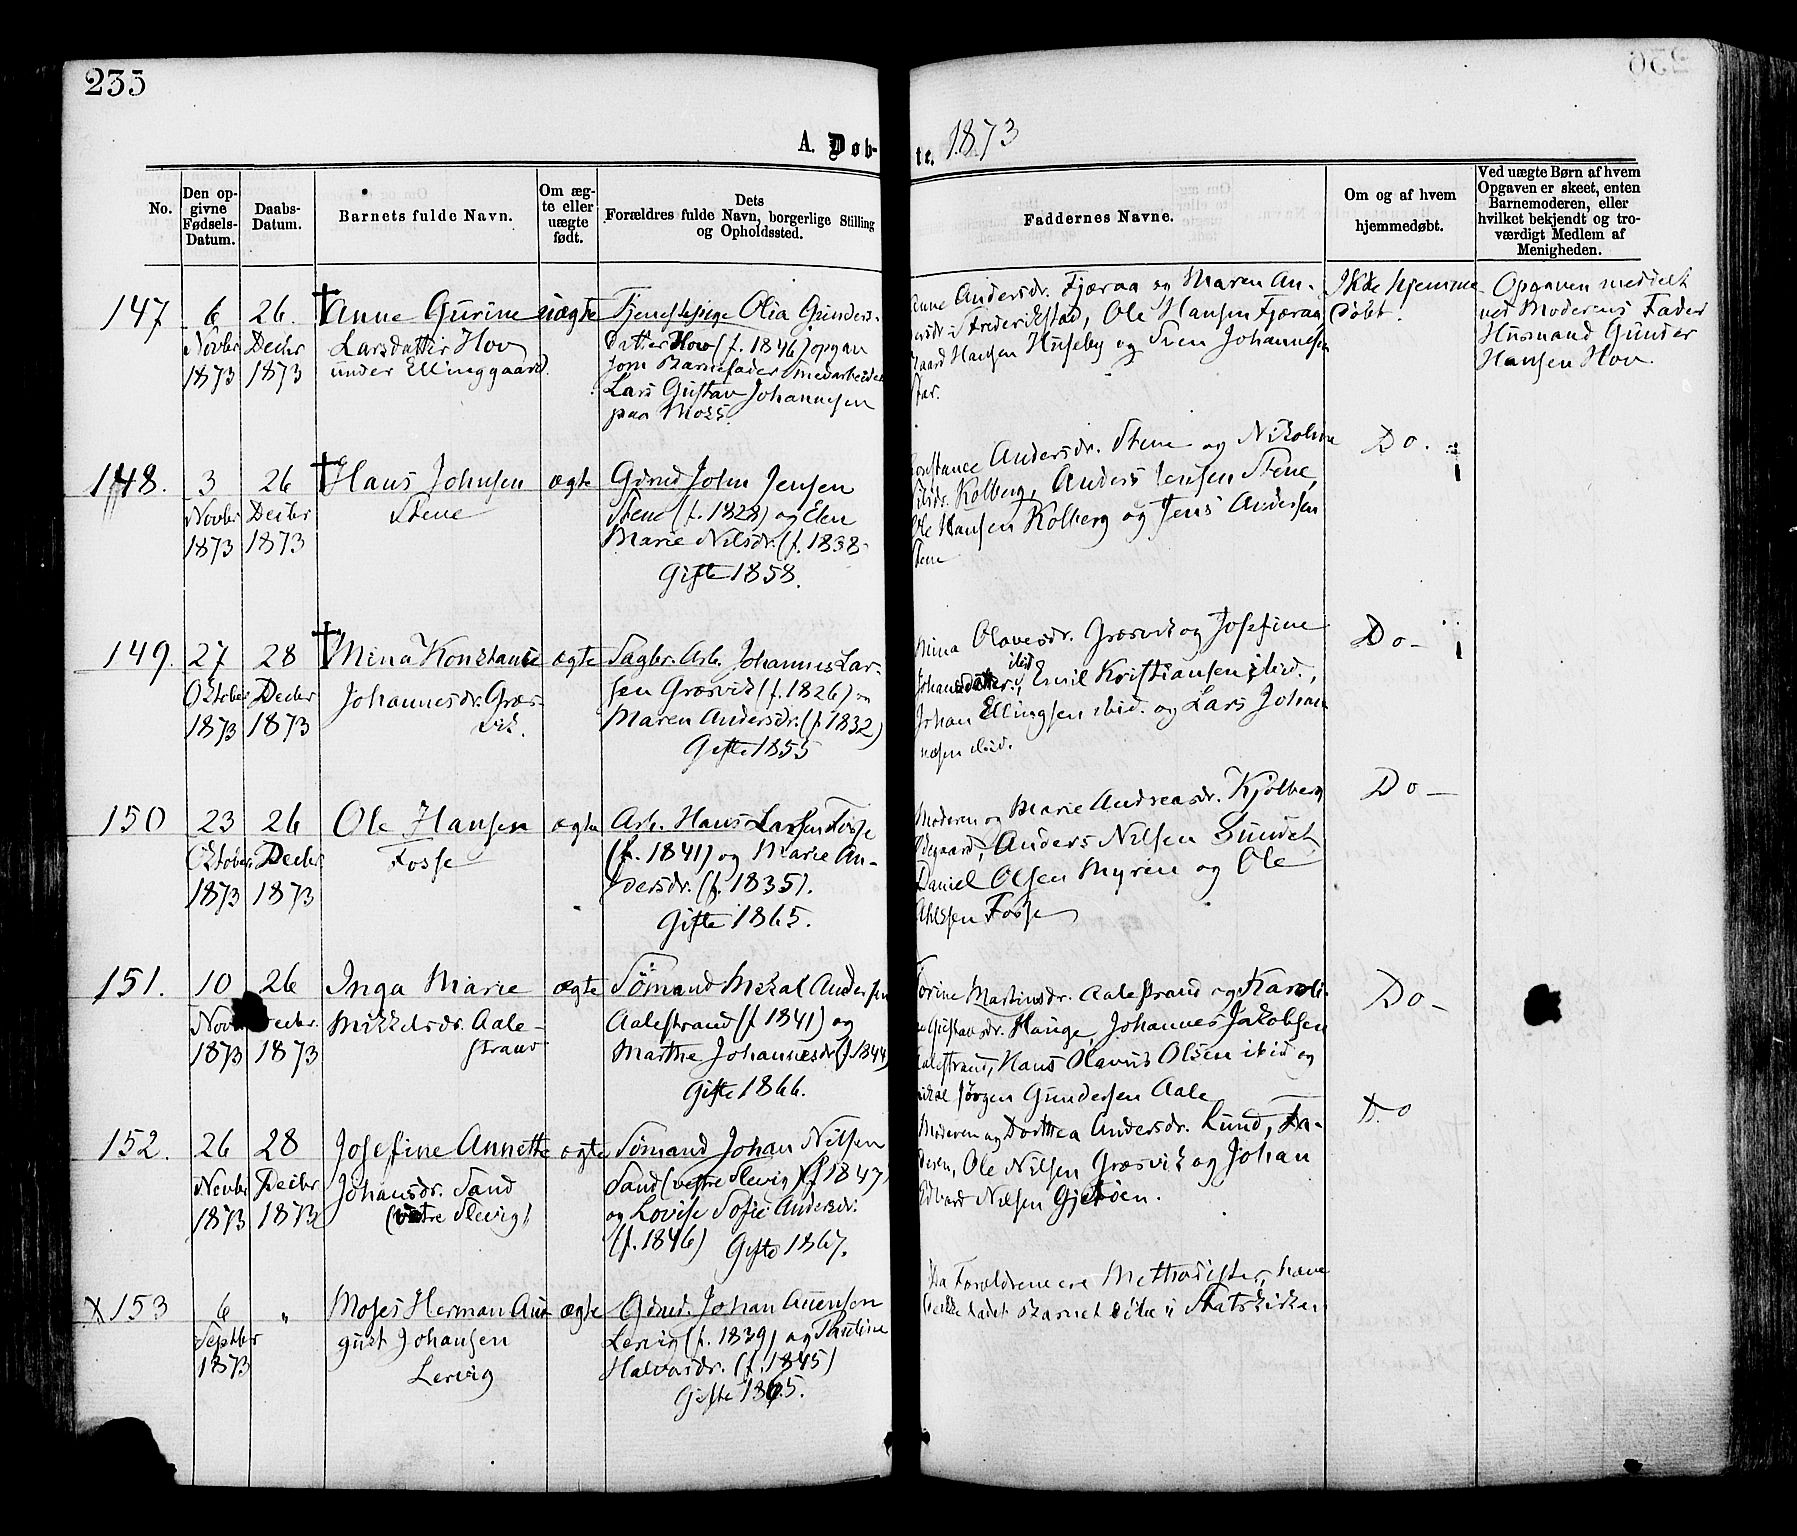 235
A. Døb-
te. 1873
No.
Den op-
givne
Fødsels-
Datum.
Daabs-
Datum.
Barnets fulde Navn.
Om æg-
te eller
uægte
født.
Dets
Forældres fulde Navn, borgerlige Stilling
og Opholdssted.
Faddernes Navne.
Om og af hvem
hjemmedøbt.
Ved uægte Børn af hvem
Opgaven er skeet, enten
Barnemoderen, eller
hvilket bekjendt og tro-
værdigt Medlem af
Menigheden.
147
6
Novbr
1873
26.
Decbr
1873
† Anne Gurine
Larsdatter Hov
under Ellinggaard.
uægte
Tjenestepige Olia Gunders-
datter Hov (f. 1846) opgav
som Barnefader
Lars Gustav Johannesen
paa Moss.
Anne Andersdr. Fjæraa og Maren An-
dersdr. Frederikstad, Ole Hansen Fjæraa,
Hansen Huseby og Sven Johannesen
Ikke hjemme
døbt.
Opgaven meddelt
ved Moderens Fader
Husmand Gunder
Hansen Hov.
148.
3
Novbr
1873
26
Decbr
1873
† Hans Johnsen
Stene
ægte
Gdmd John Jensen
Stene (f. 1828) og Elen
Marie Nilsdr. (f. 1838-
Gifte 1858.
Konstance Andersdr. Stene og Nikoline
Nilsdr. Kolberg, Anders Jensen Stene,
Ole Hansen Kolberg og Jens Andersen
Stene
Do.
149.
27
Oktober
1873
28
Decbr
1873
† Mina Konstance
Johannesdr. Græs-
vik.
ægte
Sagbr. Arb. Johannes Lar-
sen Græsvik (f. 1826) og
Maren Andersdr. (f. 1832)
Gifte 1855
Mina Olavesdr. Græsvik og Josefine
Johansdatter ibid, Emil Kristiansen ibid.,
Johan Ellingsen ibid. og Lars Johan
nesen ibid.
Do -
150
23
Oktober
1873
26
Decbr
1873
Ole Hansen
Fosse
ægte
Arb. Hans Larsen Fosse
(f. 1841) og Marie An-
dersdr. (f. 1835).
Gifte 1865.
Moderen og Marie Andreasdr. Kjølberg
Ødegaard, Anders Nilsen Sundet
Daniel Olsen Myren og Ole
Fosse
Do -
151.
10
Novbr
1873
26
Decbr.
1873
Inga Marie
Mikkelsdr. Aale-
strand
ægte
Sømand Mikal Andersen
Aalestrand (f 1841) og
Marthe Johannesdr (f 1844)
Gifte 1866.
Torine Martinsdr. Aalestrand og Karoli-
ne Gustavsdr. Hauge, Johannes Jakobsen
Aalestrand, Hans Olavus Olsen ibid og
Mikal Jørgen Gundersen Aale
Do -
152.
26
Novbr
1873
28
Decbr
1873
Josefine Annette
Johansdr. Sand
(vestre Slevig)
ægte
Sømand Johan Nilsen
Sand (vestre Slevig) (f 1847)
og Lovise Sofie Andersdr.
(f. 1846) Gifte 1867.
Moderen og Dorthea Andersdr. Lund, Fa-
deren, Ole Nilsen Græsvik og Johan
Edvard Nilsen Gjetøen.
Do
X 153
6
Septbr
1873
"
Moses Herman Au-
gust Johansen
Lervig
ægte
Gdmd. Johan Auensen
Lervig (f. 1839) og Pauline
Halvorsdr. (f. 1845)
Gifte 1865.
Da Forældrene ere Methodister, have
de ikke ladet Barnet døbe i Statskirken